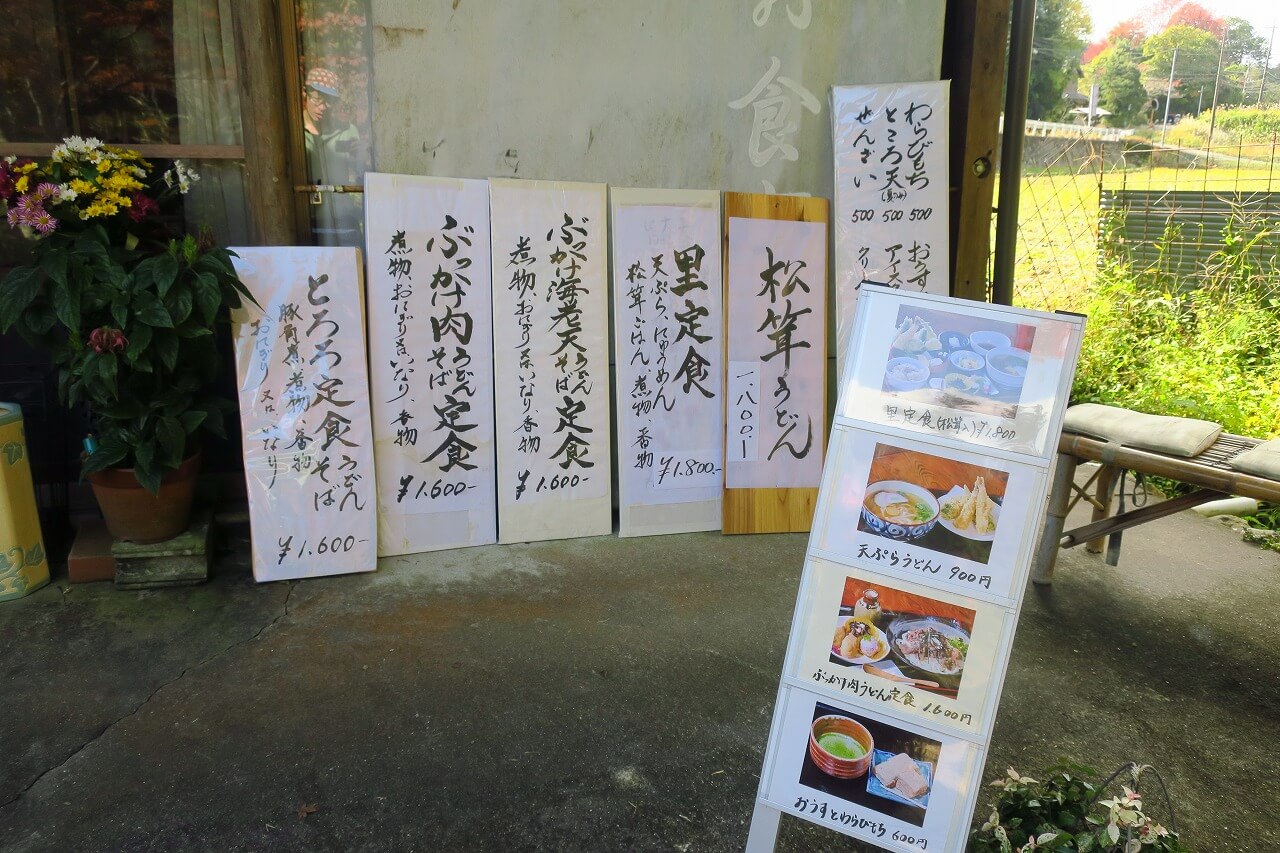 お食
わらびもち 500
ところ天 500
ぜんざい 500
おうす
松茸うどん
一、八〇〇-
里定食
天ぷら、にゅうめん
松茸ごはん、煮物、香物
¥1.800-
ぶっかけ海老天うどんそば定食
煮物、おにぎり又はいなり、香物
¥1.600-
ぶっかけ肉うどんそば定食
煮物、おにぎり又はいなり、香物
¥1.600-
とろろ定食うどんそば
煮物、香物
おにぎり 又はいなり
¥1.600-
里定食(松茸入)¥1.800
天ぷらうどん 900円
ぶっかけ肉うどん定食 1.600円
おうすとわらびもち 600円